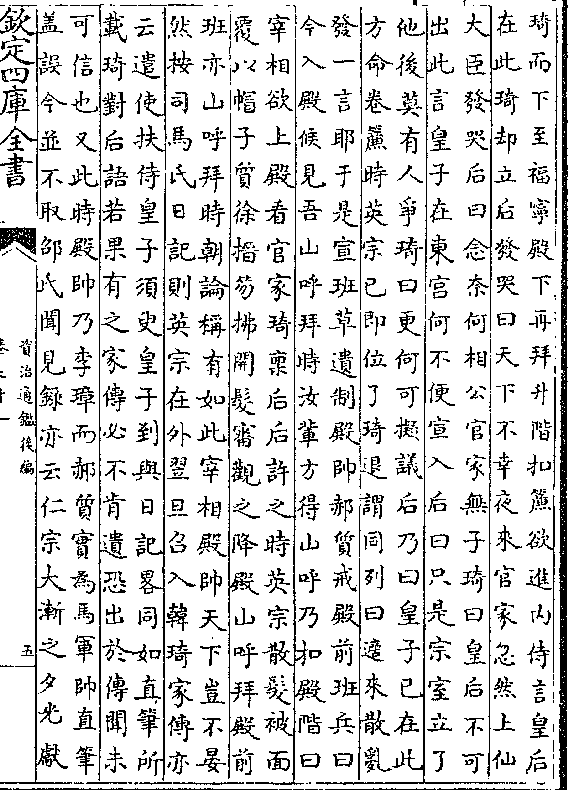 琦而下至福寧殿下再拜升階扣簾欲進內侍言皇后
在此琦却立后發哭曰天下不幸夜來官家忽然上仙
大臣發哭后曰念奈何相公官家無子琦曰皇后不可
出此言皇子在東宮何不便宣入后曰只是宗室立了
他後莫有人爭琦曰更何可擬議后乃曰皇子已在此
方命卷簾時英宗已即位了琦退謂同列曰適來散亂
發一言耶于是宣班草遺制殿帥郝質戒殿前班兵曰
今入殿候見吾山呼拜時汝輩方得山呼乃扣殿階曰
宰相欲上殿看官家琦稟后后許之時英宗散髮被面
覆以帽子質徐搢笏拂開髮審觀之降殿山呼拜殿前
班亦山呼拜時朝論稱有如此宰相殿帥天下豈不晏
然按司馬氏日記則英宗在外翌旦召入韓琦家傳亦
云遣使扶侍皇子須臾皇子到與日記畧同如直筆所
載琦對后語若果有之家傳必不肯遺恐出於傳聞未
可信也又此時殿帥乃李璋而郝質實為馬軍帥直筆
盖誤今並不取邵氏聞見錄亦云仁宗大漸之夕光獻
欽定四庫全書
資治通鑑後編
五